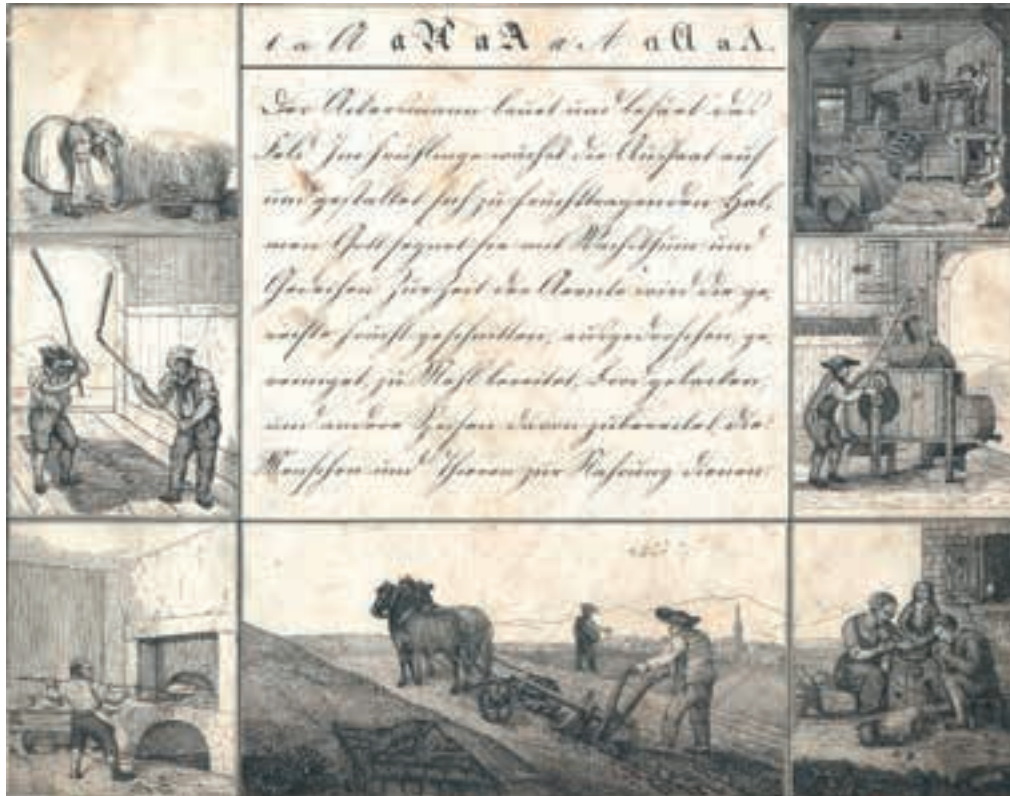 a a A a A a A a A a A a A.
Der Ackersmann bauet und besäet das
Feld. Im Frühlinge wächst die Aussaat auf
und gestaltet sich zu fruchttragenden Hal,
men Gott segnet sie mit Wachsthum und
Gedeihen. Zur Zeit der Aernte wird die ge,
reifte Frucht geschnitten, ausgedroschen, ge,
reiniget, zu Mehl bereitet, Brod gebacken,
und andere Speisen davon zubereitet die
Menschen und Thieren zur Nahrung dienen.